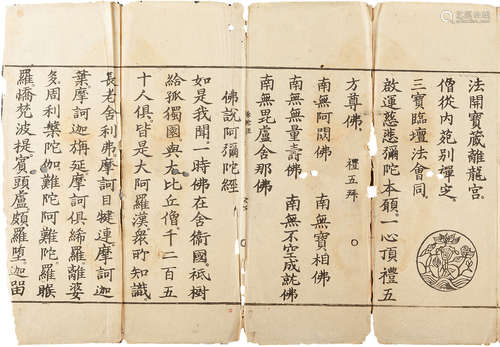 法開寶藏離龍宮
僧從內苑別禪定
三寶臨壇法會同
啟運慈悲彌陀本願一心頂禮五
方尊佛 禮五拜
南無阿閦佛 南無寶相佛
南無無量壽佛 南無不空成就佛
南無毘盧舍那佛
佛說阿彌陀經
如是我聞一時佛在舍衛國祇樹
給孤獨園與大比丘僧千二百五
十人俱皆是大阿羅漢眾所知識
長老舍利弗摩訶目犍連摩訶迦
葉摩訶迦旃延摩訶俱絺羅離婆
多周利槃陀伽難陀阿難陀羅睺
羅憍梵波提賓頭盧頗羅墮迦留